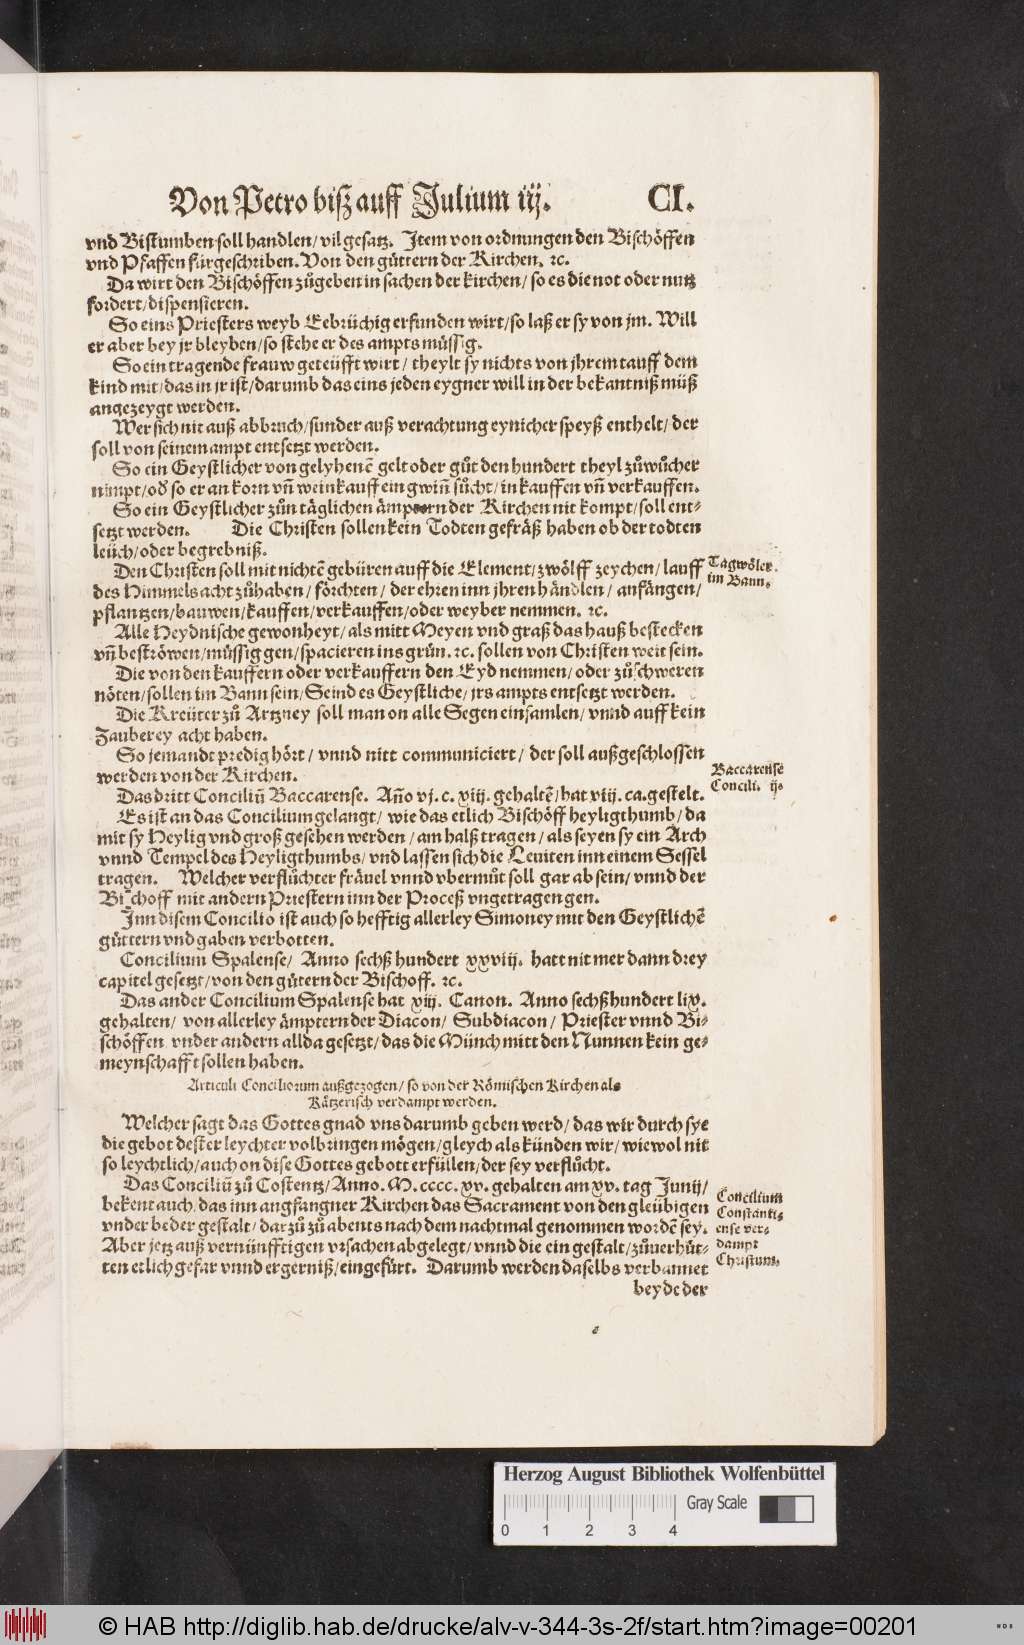 Von Petro biß auff Julium iij. CI.
vnd Bistumben soll handlen/ vil gesatz. Item von ordnungen den Bischöffen
vnd Pfaffen fürgeschriben. Von den güttern der Kirchen. ꝛc.
Da wirt den Bischöffen zůgeben in sachen der kirchen/ so es die not oder nutz
fordert/ dispensieren.
So eins Priesters weyb Eebrüchig erfunden wirt/ so laß er sy von jm. Will
er aber bey jr bleyben/ so stehe er des ampts müssig.
So ein tragende frauw geteüfft wirt/ theylt sy nichts von jhrem tauff dem
kind mit/ das in jr ist/ darumb das eins jeden eygner will in der bekantniß müß
angezeygt werden.
Wer sich nit auß abbruch/ sunder auß verachtung eynicher speyß enthelt/ der
soll von seinem ampt entsetzt werden.
So ein Geystlicher von gelyhenē gelt oder gůt den hundert theyl zůwůcher
nimpt/ oď so er an korn vñ wein kauff ein gwiñ sůcht/ in kauffen vñ verkauffen.
So ein Geystlicher zůn täglichen ämptern der Kirchen nit kompt/ soll ent-
setzt werden. Die Christen sollen kein Todten gefräß haben ob der todten
leüch/ oder begrebniß.
Den Christen soll mit nichtē gebüren auff die Element/ zwölff zeychen/ lauff
des Himmels acht zůhaben/ förchten/ der ehren inn jhren händlen/ anfängen/
pflantzen/ bauwen/ kauffen/ verkauffen/ oder weyber nemmen. ꝛc.
Tagwöler
im Bann.
Alle Heydnische gewonheyt/ als mitt Meyen vnd graß das hauß bestecken
vñ beströwen/ müssig gen/ spacieren ins grün. ꝛc. sollen von Christen weit sein.
Die von den kauffern oder verkauffern den Eyd nemmen/ oder zůschweren
nöten/ sollen im Bann sein/ Seind es Geystliche/ jrs ampts entsetzt werden.
Die Kreüter zů Artzney soll man on alle Segen einsamlen/ vnnd auff kein
Zauberey acht haben.
So jemandt predig hört/ vnnd nitt communiciert/ der soll außgeschlossen
werden von der Kirchen.
Baccarense
Concili. ij.
Das dritt Conciliũ Baccarense. Año vj. c. xiij. gehaltē/ hat viij. ca. gestelt.
Es ist an das Concilium gelangt/ wie das etlich Bischöff heyligthumb/ da
mit sy Heylig vnd groß gesehen werden/ am halß tragen/ als seyen sy ein Arch
vnnd Tempel des Heyligthumbs/ vnd lassen sich die Leuiten inn einem Sessel
tragen. Welcher verflüchter fräuel vnnd vbermůt soll gar ab sein/ vnnd der
Bischoff mit andern Priestern inn der Proceß vngetragen gen.
Inn disem Concilio ist auch so hefftig allerley Simoney mit den Geystlichē
güttern vnd gaben verbotten.
Concilium Spalense/ Anno sechß hundert xxviij. hatt nit mer dann drey
capitel gesetzt/ von den gütern der Bischoff. ꝛc.
Das ander Concilium Spalense hat xiij. Canon. Anno sechßhundert lix.
gehalten/ von allerley ämptern der Diacon/ Subdiacon/ Priester vnnd Bi-
schöffen vnder andern allda gesetzt/ das die Münch mitt den Nunnen kein ge-
meynschafft sollen haben.
Articuli Conciliorum außgezogen/ so von der Römischen Kirchen als
Kätzerisch verdampt werden.
Welcher sagt das Gottes gnad vns darumb geben werd/ das wir durch sye
die gebot dester leychter volbringen mögen/ gleych als künden wir/ wiewol nit
so leychtlich/ auch on dise Gottes gebott erfüllen/ der sey verflůcht.
Das Conciliũ zů Costentz/ Anno. M. cccc. xv. gehalten am xv. tag Junij/
bekent auch/ das inn angfangner Kirchen das Sacrament von den gleübigen
vnder beder gestalt/ dar zů zů abents nach dem nachtmal genommen wordē sey.
Aber jetz auß vernünfftigen vrsachen abgelegt/ vnnd die ein gestalt/ zůuerhüt-
ten etlich gefar vnnd ergerniß/ eingefürt. Darumb werden daselbs verbannet
Concilium
Constanti-
ense ver-
dampt
Christum.
beyde der
Herzog August Bibliothek Wolfenbüttel
Gray Scale
0 1 2 3 4
© HAB http://diglib.hab.de/drucke/alv-v-344-3s-2f/start.htm?image=00201